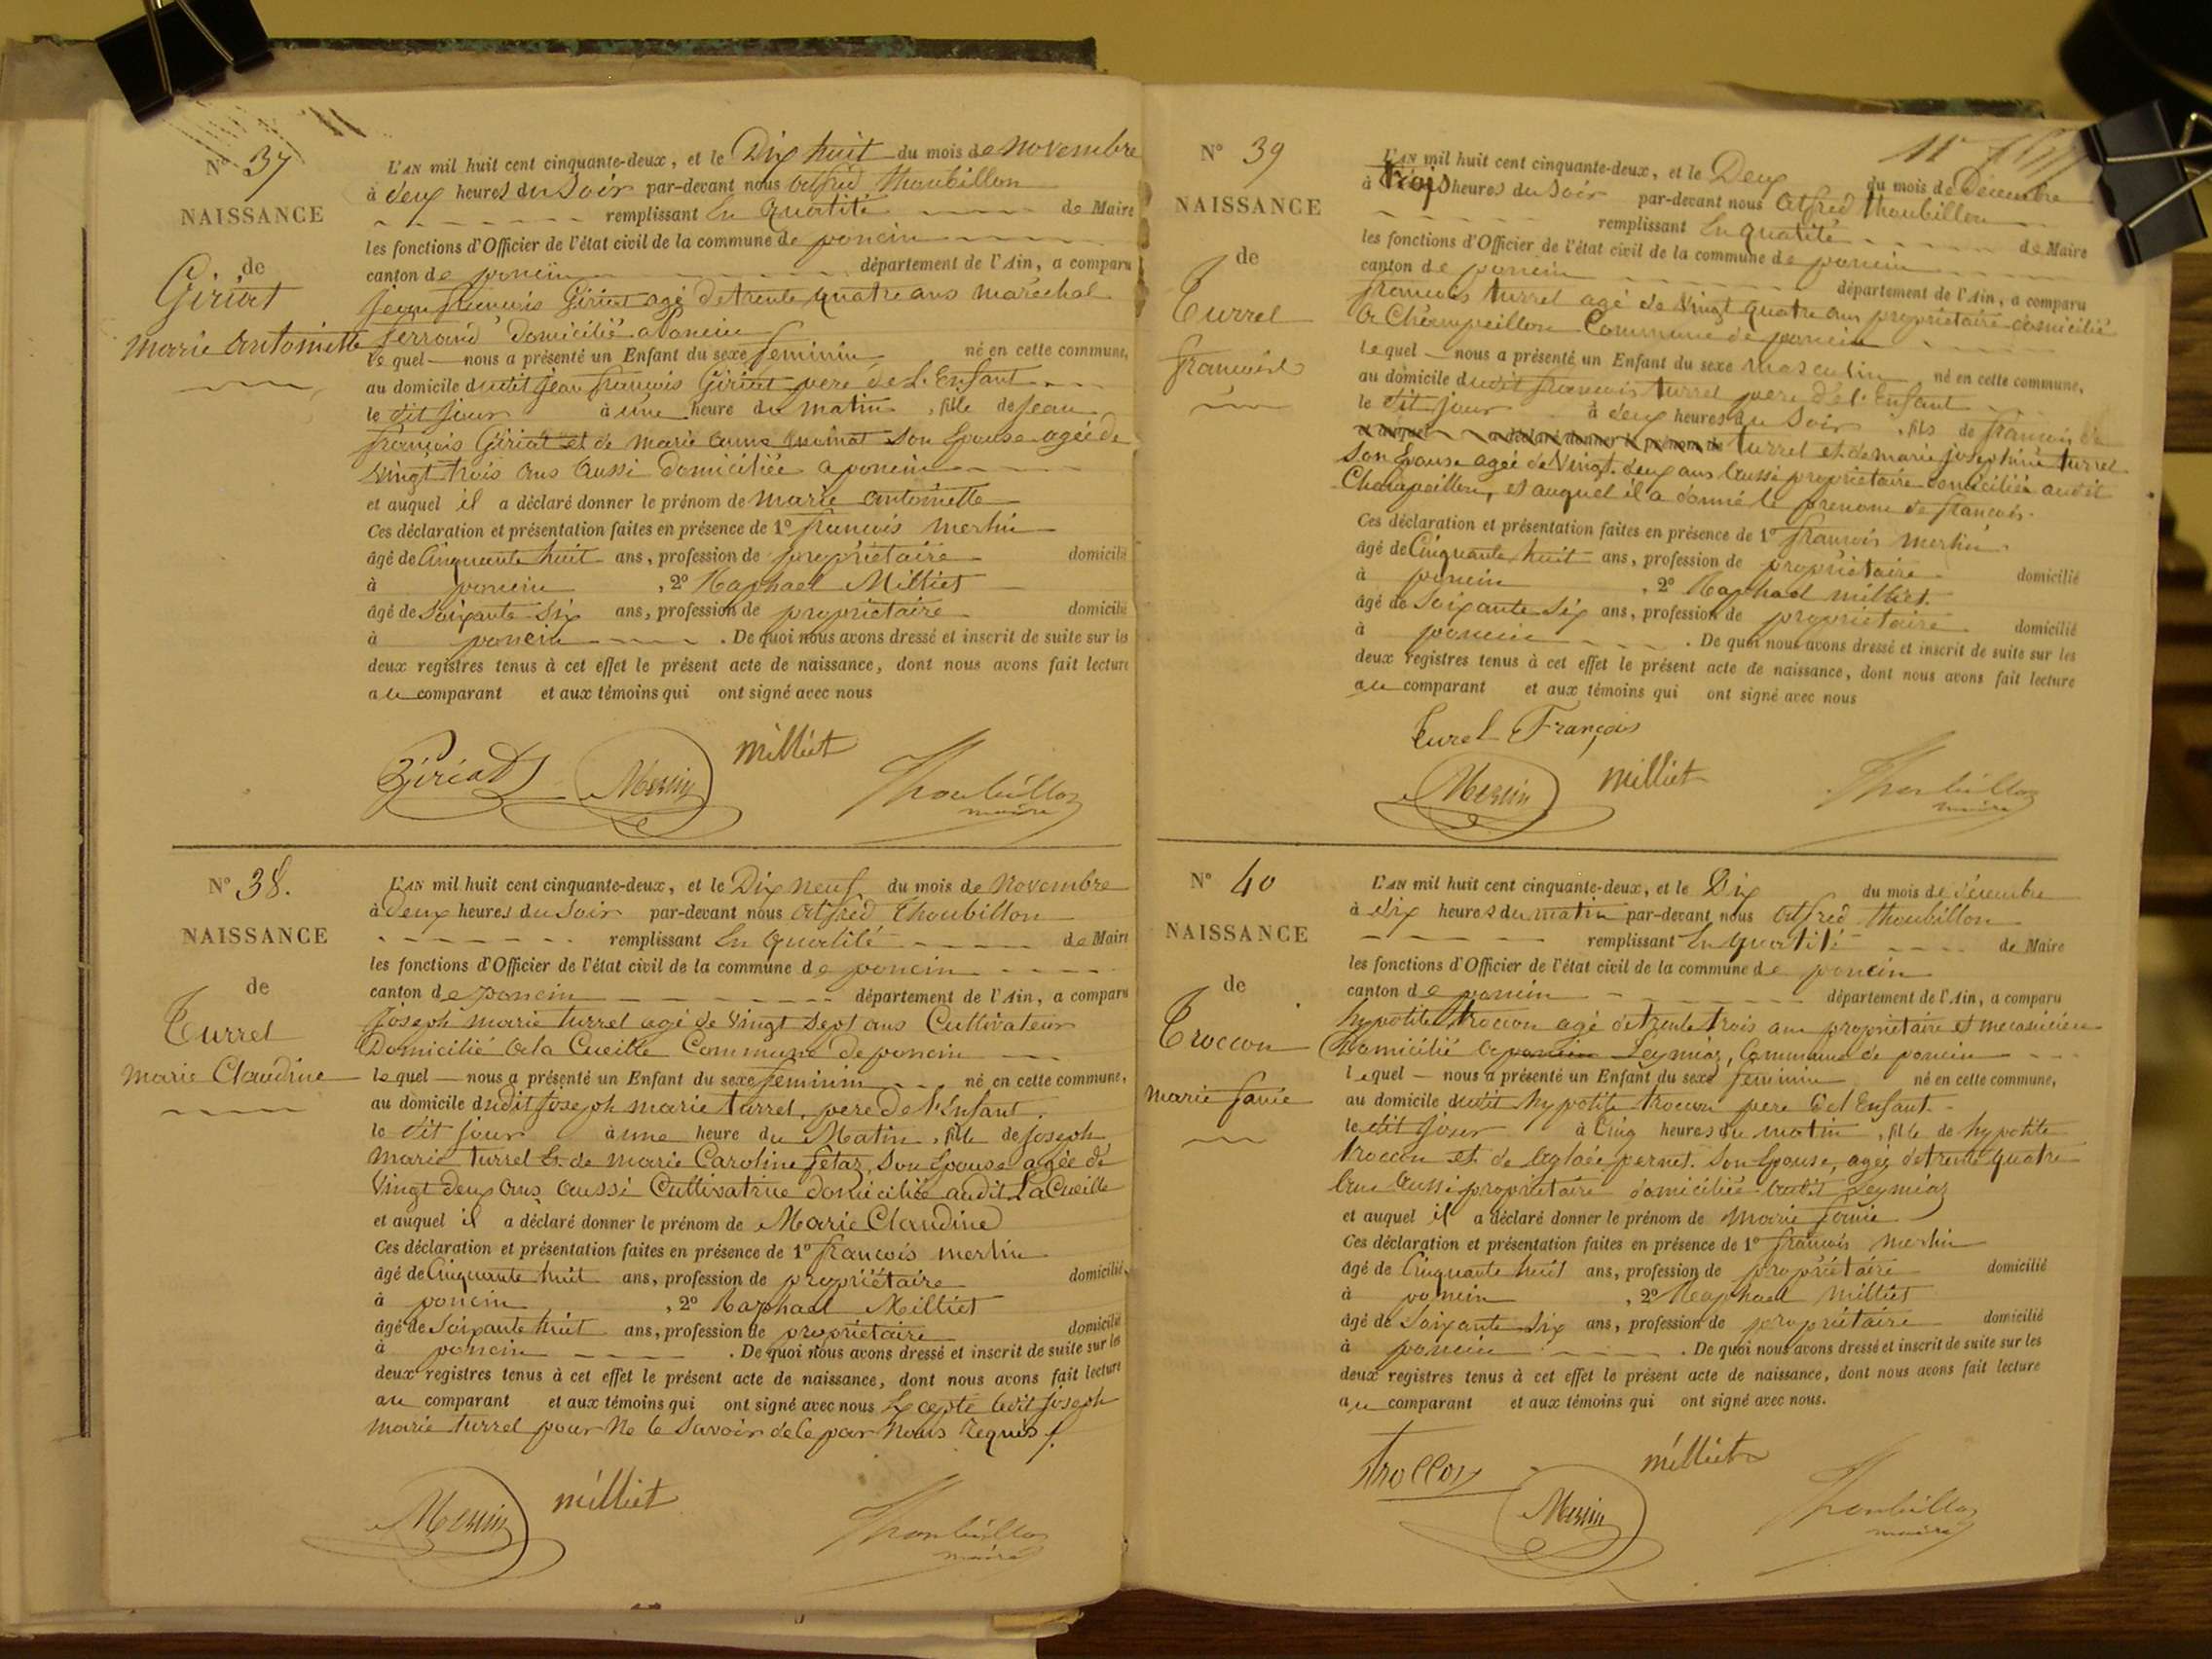 N° 37
NAISSANCE
de
Giriat
Marie Antoinette
L'AN mil huit cent cinquante-deux, et le Dix huit du mois de novembre
à deux heures du Soir par-devant nous Alfred Thoubillon
remplissant En Qualité de Maire
les fonctions d'Officier de l'état civil de la commune de poncin
canton de poncin département de l'Ain, a comparu
jean francois Giriat agé de trente quatre ans maréchal
ferrand domicilié a Poncin
lequel nous a présenté un Enfant du sexe feminin né en cette commune,
au domicile dudit jean francois Giriat pere de L'Enfant
le dit jour à une heure du matin, fille de jean
françois Giriat et de marie son Epouse agée de
vingt trois ans aussi domiciliée a poncin
et auquel il a déclaré donner le prénom de marie antoinette
Ces déclaration et présentation faites en présence de 1° francois merlin
âgé de Cinquante huit ans, profession de propriétaire domicilié
à poncin, 2° Raphael Milliet
âgé de Soixante Six ans, profession de propriétaire domicilié
à poncin. De quoi nous avons dressé et inscrit de suite sur les
deux registres tenus à cet effet le présent acte de naissance, dont nous avons fait lecture
au comparant et aux témoins qui ont signé avec nous
Giriat Merlin milliet Thoubillon
maire
N° 38.
NAISSANCE
de
Turrel
Marie Claudine
L'AN mil huit cent cinquante-deux, et le Dix neuf du mois de Novembre
à Deux heures du Soir par-devant nous Alfred Thoubillon
remplissant En Qualité de Maire
les fonctions d'Officier de l'état civil de la commune de poncin
canton de poncin département de l'Ain, a comparu
Joseph marie turrel agé de vingt Sept ans Cultivateur
Domicilié a la Cueille Commune de poncin
lequel nous a présenté un Enfant du sexe feminin né en cette commune,
au domicile dudit Joseph marie turrel, pere de l'Enfant.
le dit jour à une heure du Matin, fille de Joseph
marie turrel Et de marie Caroline fétaz, Son Epouse agée de
Vingt deux ans aussi Cultivatrice domiciliée audit La Cueille
et auquel il a déclaré donner le prénom de Marie Claudine
Ces déclaration et présentation faites en présence de 1° francois merlin
âgé de Cinquante huit ans, profession de propriétaire domicilié,
à poncin, 2° Raphael Milliet
âgé de Soixante huit ans, profession de propriétaire domicilié
à poncin. De quoi nous avons dressé et inscrit de suite sur les
deux registres tenus à cet effet le présent acte de naissance, dont nous avons fait lecture
au comparant et aux témoins qui ont signé avec nous Excepté ledit Joseph
marie turrel pour Ne le Savoir de ce par Nous requis.
Merlin milliet Thoubillon
maire
N° 39
NAISSANCE
de
Turrel
francois
L'AN mil huit cent cinquante-deux, et le Deux du mois de Décembre
à trois heures du Soir par-devant nous Alfred thoubillon
remplissant En qualité de Maire
les fonctions d'Officier de l'état civil de la commune de poncin
canton de poncin département de l'Ain, a comparu
francois turrel agé de Vingt quatre ans propriétaire domicilié
a Champeillon Commune de poncin
lequel nous a présenté un Enfant du sexe masculin né en cette commune,
au domicile dudit francois turrel pere de l'Enfant
le dit jour à deux heures du Soir, fils de francois
et auquel a déclaré donner le prénom de turrel et de marie josephine turrel
Son Epouse agée de Vingt deux ans aussi propriétaire domiciliée audit
Champeillon, et auquel il a donné le prenom de francois.
Ces déclaration et présentation faites en présence de 1° francois merlin
âgé de Cinquante huit ans, profession de propriétaire domicilié
à poncin, 2° Raphael milliet
âgé de Soixante Six ans, profession de propriétaire domicilié
à poncin. De quoi nous avons dressé et inscrit de suite sur les
deux registres tenus à cet effet le présent acte de naissance, dont nous avons fait lecture
au comparant et aux témoins qui ont signé avec nous
Turel François
Merlin milliet Thoubillon
maire
N° 40
NAISSANCE
de
Troccon
marie fanie
L'AN mil huit cent cinquante-deux, et le Dix du mois de décembre
à dix heures du matin par-devant nous Alfred thoubillon
remplissant En qualité de Maire
les fonctions d'Officier de l'état civil de la commune de poncin
canton de poncin département de l'Ain, a comparu
hypolite troccon agé de trente trois ans propriétaire et mecanicien
Domicilié a poncin Leymiaz, Commune de poncin
lequel nous a présenté un Enfant du sexe feminin né en cette commune,
au domicile dudit hypolite troccon pere de l'Enfant
le dit jour à Cinq heures du matin, fille de hypolite
troccon et de aglaée pernet son Epouse, agée de trente quatre
ans aussi propriétaire domiciliée audit Leymiaz
et auquel il a déclaré donner le prénom de marie fanie
Ces déclaration et présentation faites en présence de 1° francois merlin
âgé de Cinquante huit ans, profession de propriétaire domicilié
à poncin, 2° Raphael milliet
âgé de Soixante Six ans, profession de propriétaire domicilié
à poncin. De quoi nous avons dressé et inscrit de suite sur les
deux registres tenus à cet effet le présent acte de naissance, dont nous avons fait lecture
au comparant et aux témoins qui ont signé avec nous.
troccon Merlin milliet Thoubillon
maire